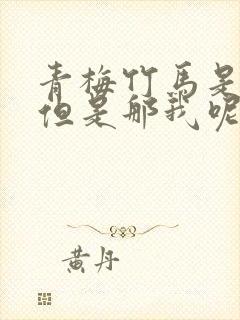 青梅竹马是
但是那我呢
黄丹